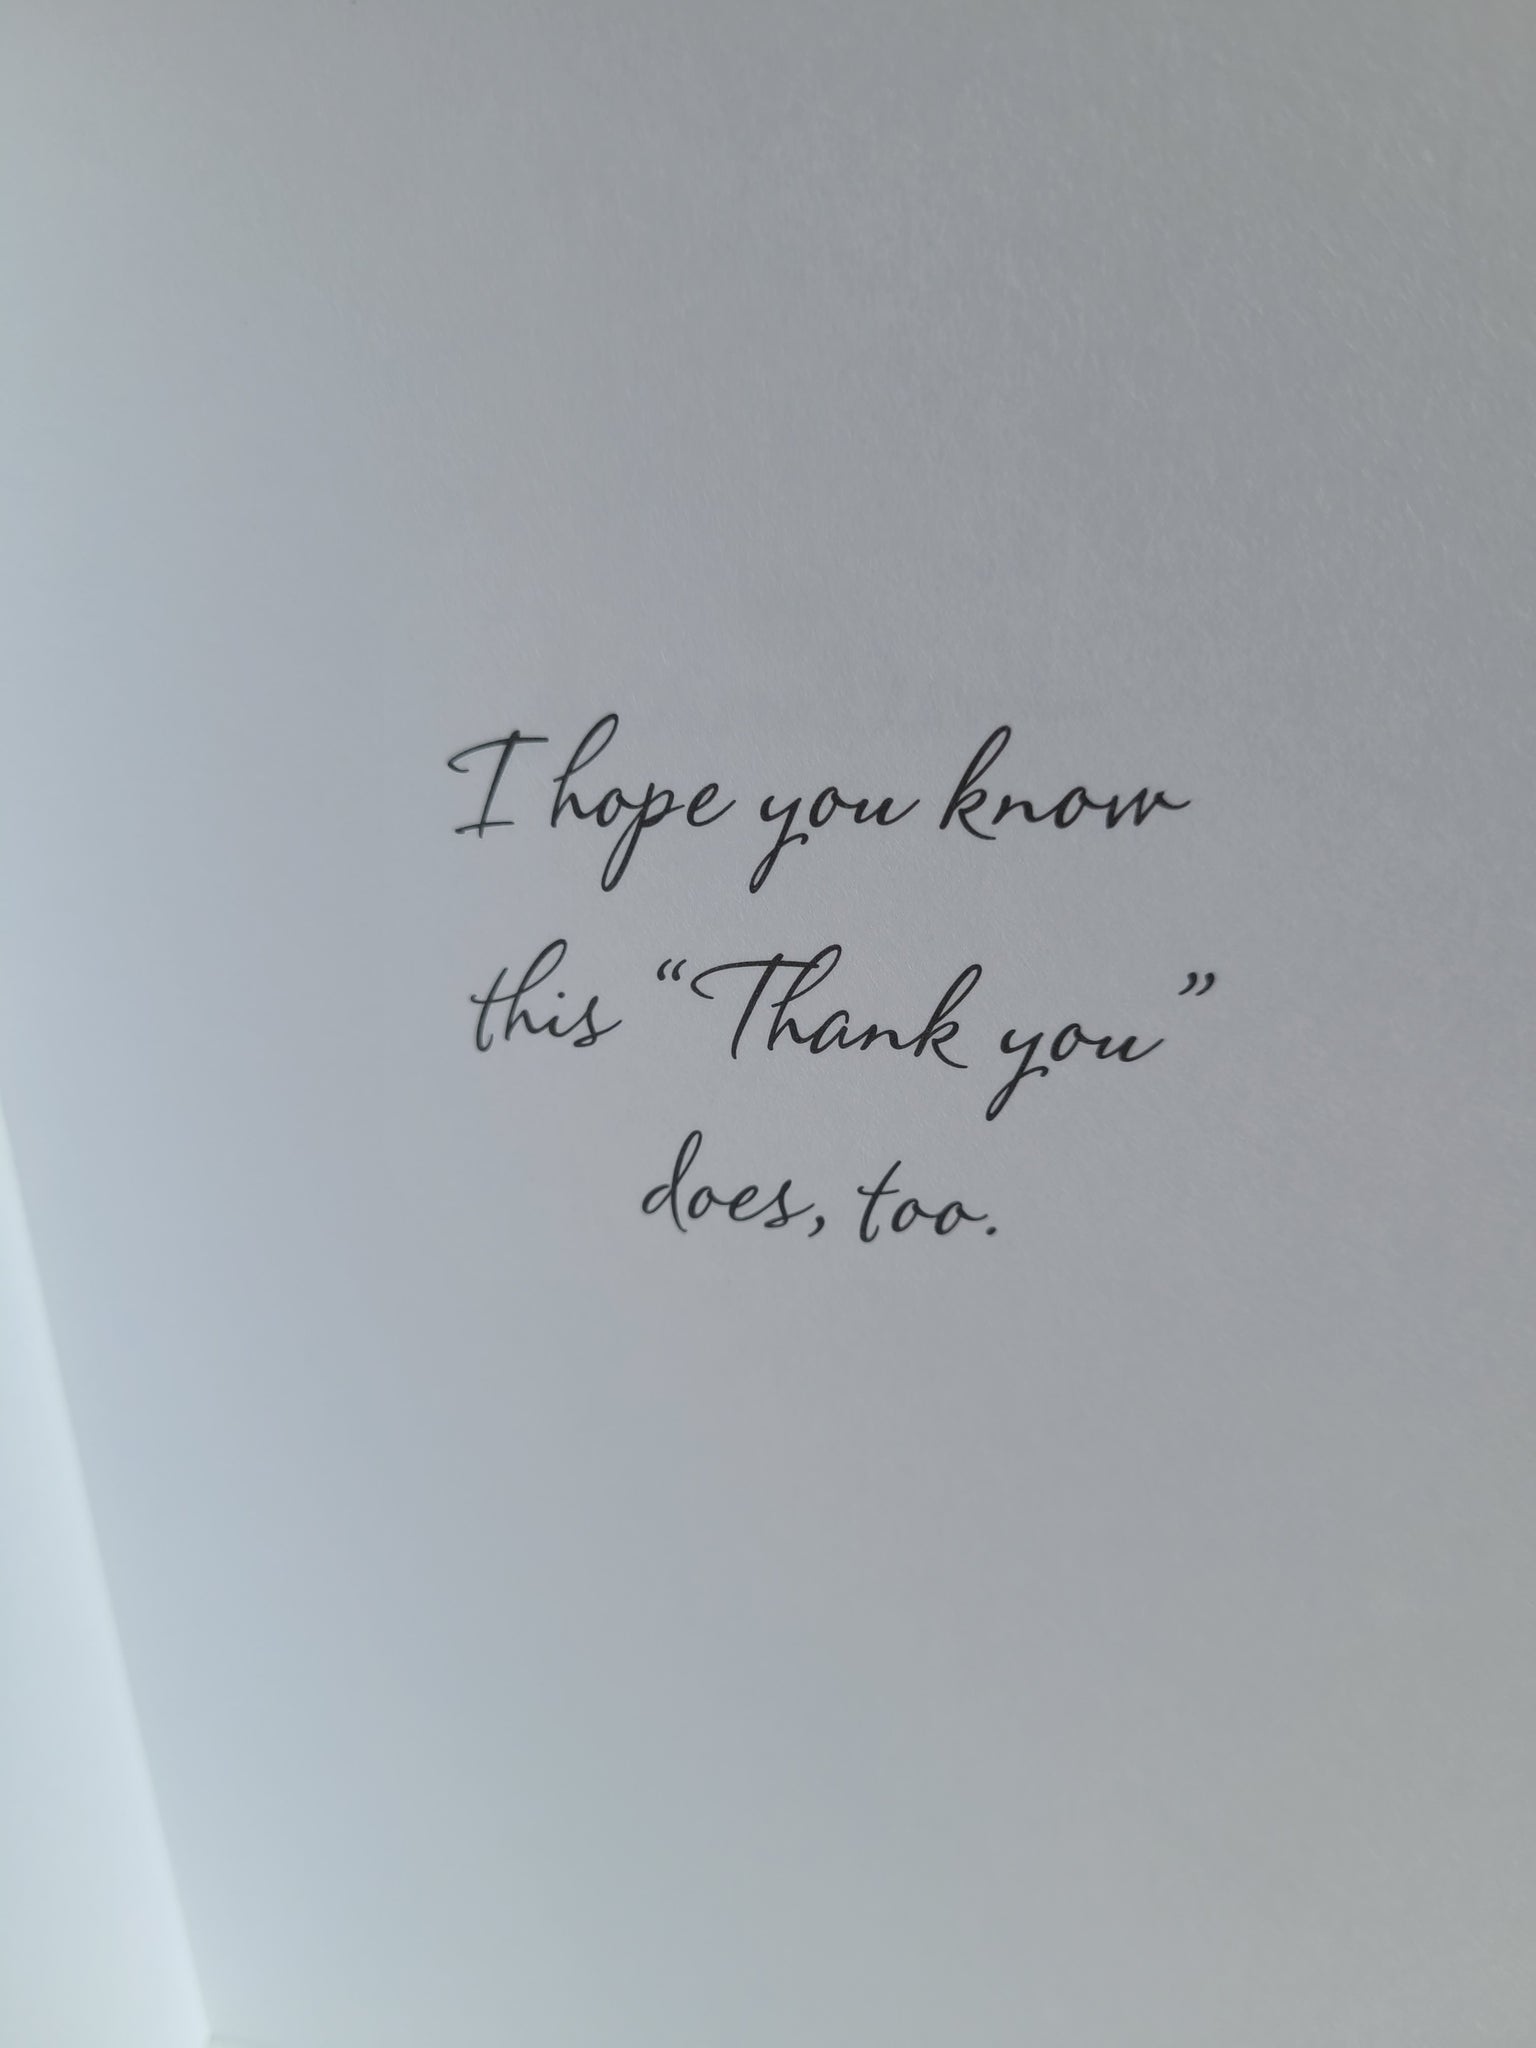 I hope you know
this “Thank you”
does, too.